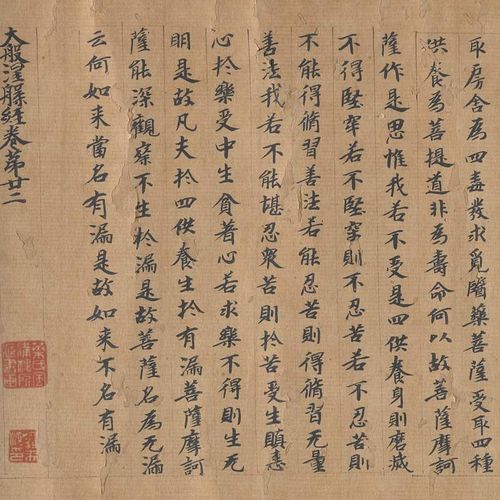 取房舍為四毒虵求覓醫藥菩薩受取四種
供養為菩提道非為壽命何以故菩薩摩訶
薩作是思惟我若不受是四供養身則磨滅
不得堅牢若不堅牢則不忍苦若不忍苦則
不能得脩習善法若能忍苦則得脩習无量
善法我若不能堪忍眾苦則於苦受生瞋恚
心於樂受中生貪著心若求樂不得則生无
明是故凡夫於四供養生於有漏菩薩摩訶
薩能深觀察不生於漏是故菩薩名為无漏
云何如來當名有漏是故如來不名有漏
大般涅槃經卷第廿二